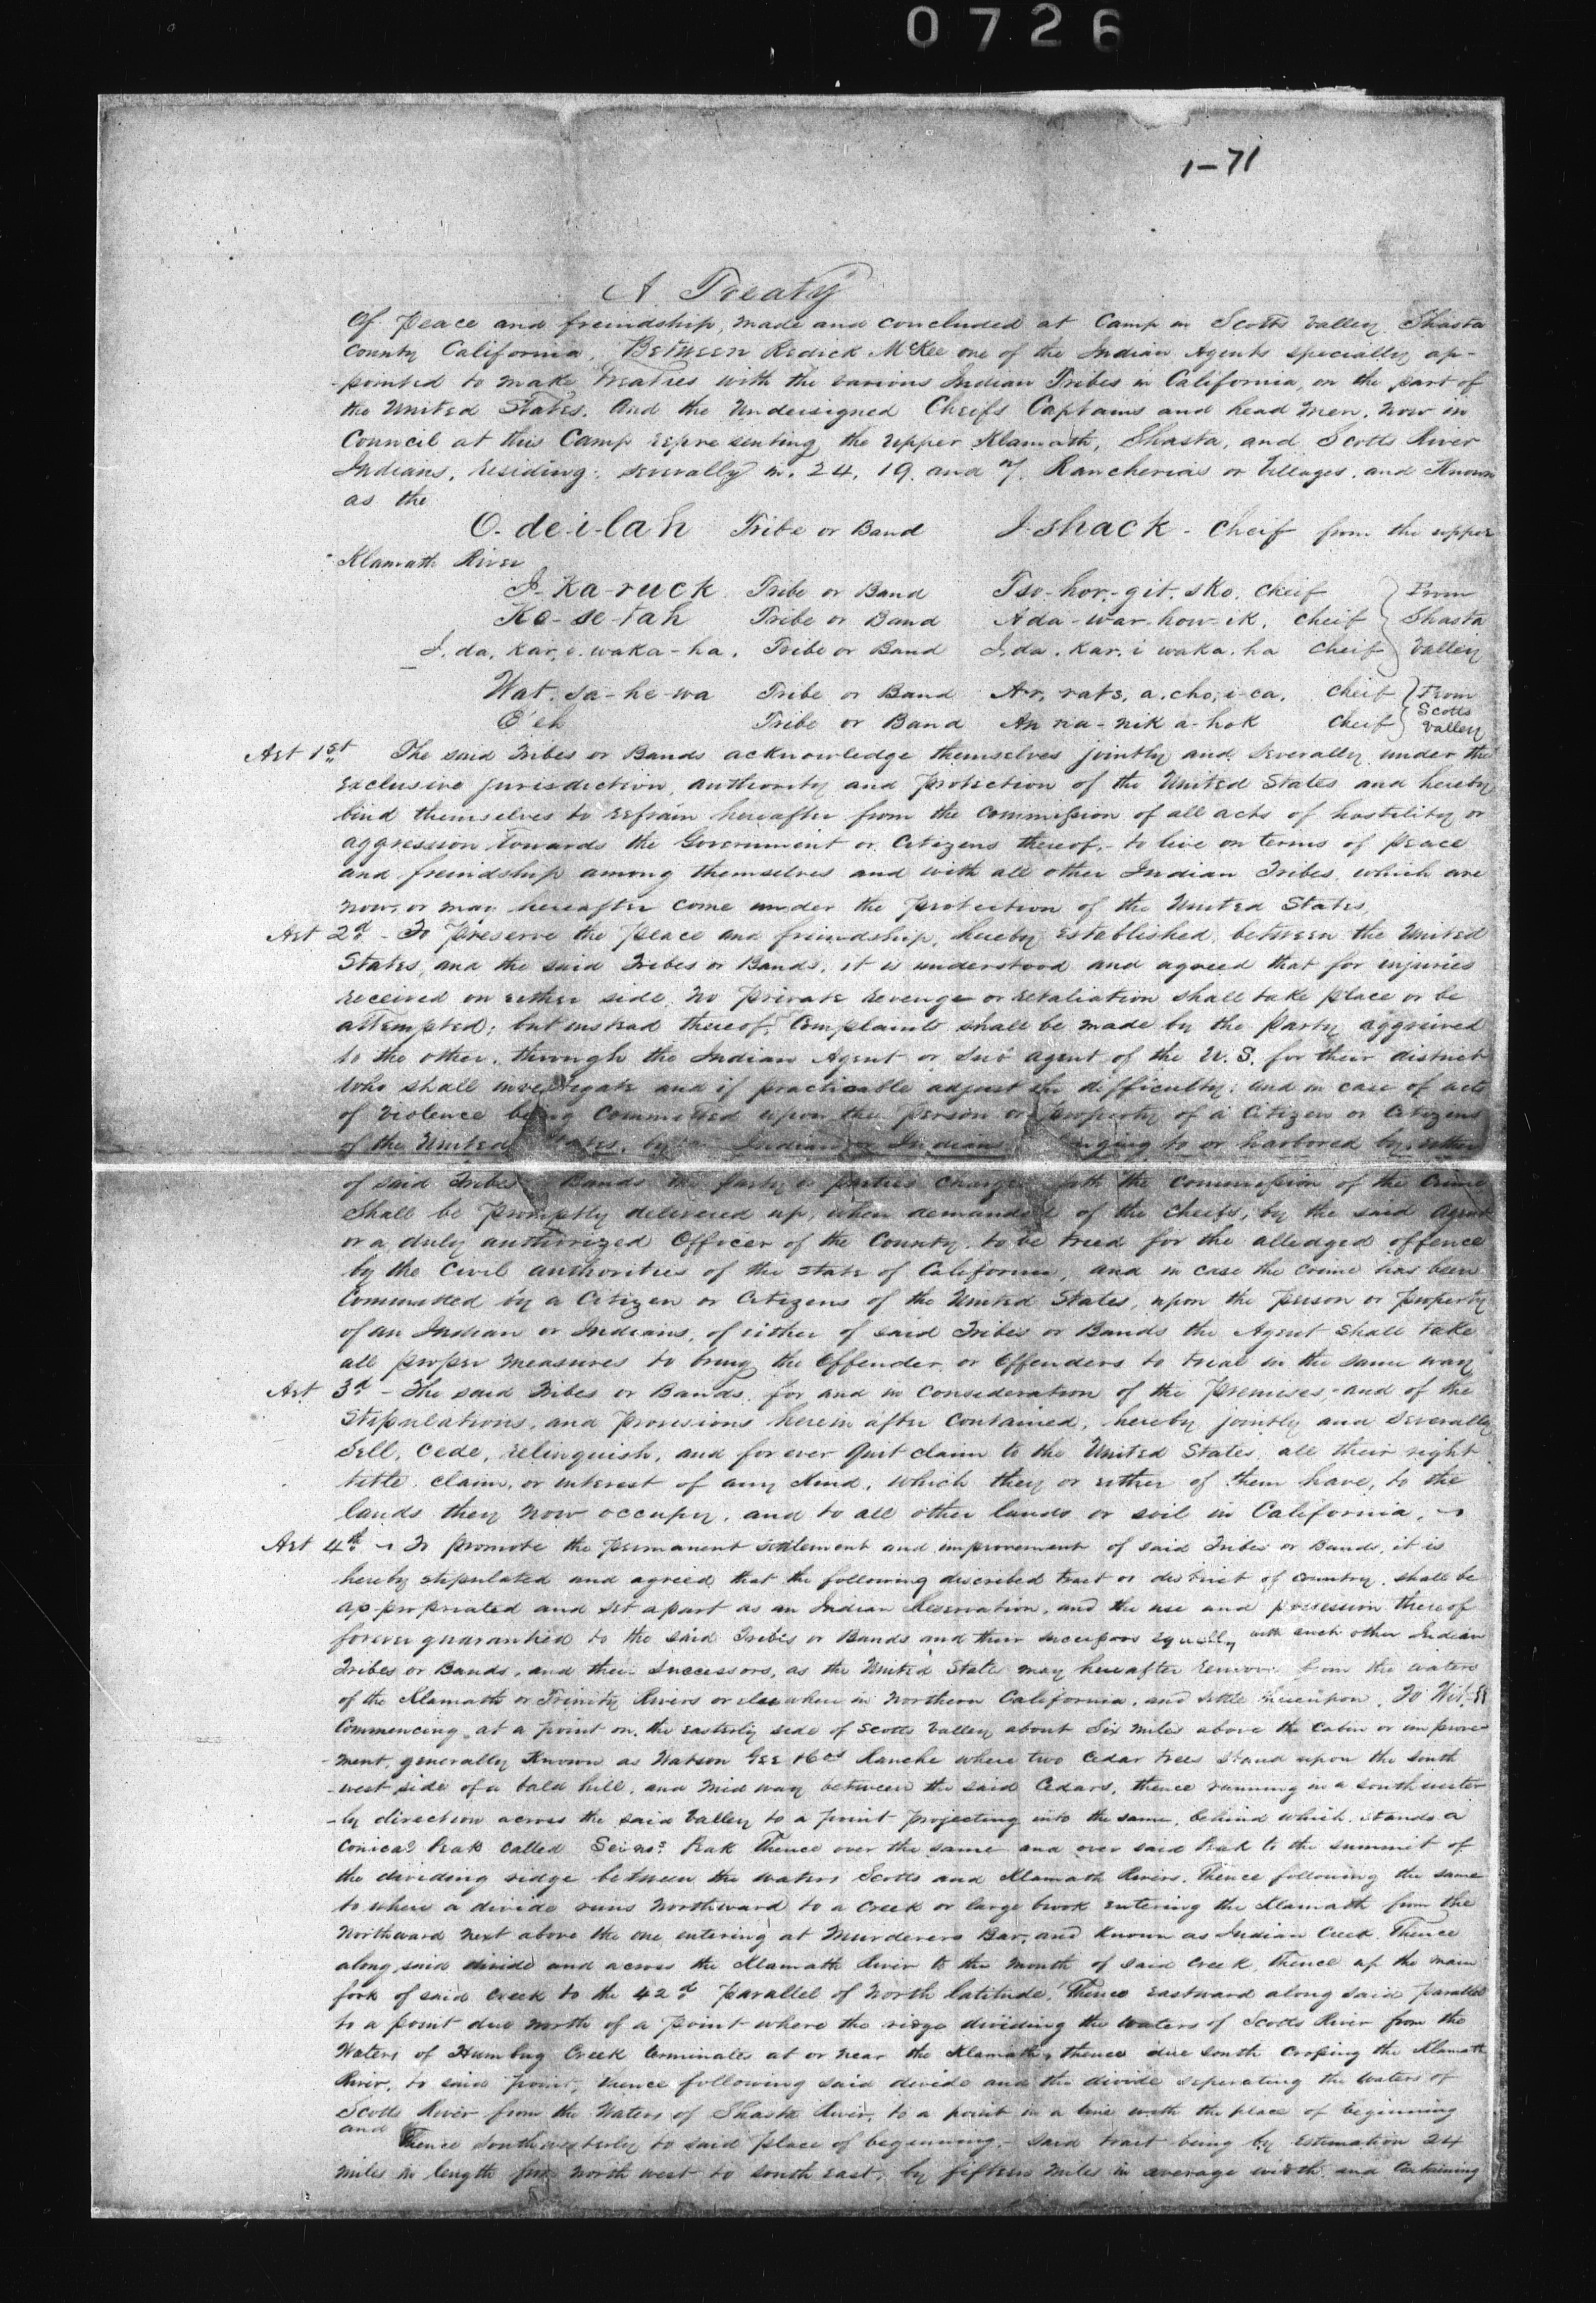 0726
1-71
A Treaty
Of peace and freindship, made and concluded at Camp in Scotts Valley Shasta
County California, Between Redick McKee one of the Indian Agents specially ap-
-pointed to make treaties with the various Indian Tribes in California, on the part of
the United States. And the Undersigned Cheifs Captains and head men, now in
Council at this Camp representing the upper Klamath, Shasta, and Scotts River
Indians, residing severally in 24, 19 and 7 Rancherias or Villages, and Known
as the
O-de-i-lah Tribe or Band I-shack - cheif from the upper
Klamath River
I-Ka-ruck Tribe or Band Tso-hor-git-sko, cheif From
Ko-se-tah Tribe or Band Ada-war-how-ik, cheif Shasta
I,da, kar,i, waka-ha, Tribe or Band I,da,kar,i waka,ha cheif Valley
Wat,sa-he-wa Tribe or Band Ar,rats,a,cho,i-ca, cheif From
E'eh Tribe or Band An na-nik a-hok cheif Scotts Valley
Art 1st The said Tribes or Bands acknowledge themselves jointly and severally under the
exclusive jurisdiction, authority and protection of the United States and hereby
bind themselves to refrain hereafter from the commission of all acts of hostility or
aggression towards the Government or Citizens thereof, - to live on terms of peace
and freindship among themselves and with all other Indian Tribes which are
now, or may hereafter come under the protection of the United States,
Art 2d - To preserve the peace and freindship, hereby established between the United
States, and the said Tribes or Bands, it is understood and agreed that for injuries
received on either side no private revenge or retaliation shall take place or be
attempted; but instead thereof, Complaints shall be made by the party aggreived
to the other, through the Indian Agent or Sub agent of the U.S. for their district
who shall investigate and if practicable adjust the difficulty; and in case of acts
of violence being Committed upon the person or property of a Citizen or Citizens
of the United States, by an Indian or Indians nging to or harbored by either
of said Tribes Bands the party or parties charge with the commission of the Crime
Shall be promptly delivered up, when demanded of the cheifs, by the said Agent
or a duly authorized Officer of the County, to be tried for the alledged offence
by the Civil authorities of the state of California, and in case the crime has been
Committed by a Citizen or Citizens of the United States, upon the person or property
of an Indian or Indians, of either of said Tribes or Bands the Agent shall take
all proper measures to bring the Offender or Offenders to trial in the same way
Art 3d - The said Tribes or Bands, for and in consideration of the premises, and of the
Stipulations, and provisions herein after contained, hereby jointly and severally
Sell, cede, relinquish, and for ever quit claim to the United States all their right
title, claim, or interest of any kind, which they or either of them have, to the
lands they now occupy, and to all other lands or soil in California,
Art 4th To promote the permanent settlement and improvement of said Tribes or Bands, it is
hereby stipulated and agreed that the following described tract or district of country, shall be
appropriated and set apart as an Indian Reservation, and the use and possession thereof
forever guarantied to the said Tribes or Bands and their successors equally with such other Indian
Tribes or Bands, and their Successors, as the United States may hereafter remove from the waters
of the Klamath or Trinity Rivers or elsewhere in Northern California, and settle thereupon, To Wit.
Commencing at a point on the easterly side of Scotts Valley about Six miles above the Cabin or improve-
-ment generally Known as Watson Gee & Cos Ranche where two Cedar trees stand upon the south
-west side of a bald hill, and mid way between the said Cedars, thence running in a southwester
-ly direction across the said Valley to a point projecting into the same, behind which, stands a
Conical Peak called Peak Thence over the same and over said Peak to the summit of
the dividing ridge between the waters Scotts and Klamath Rivers, thence following the same
to where a divide runs Northward to a creek or large brook entering the Klamath from the
Northward next above the one entering at Murderers Bar, and Known as Indian Creek Thence
along said divide and across the Klamath River to the mouth of said Creek, thence up the main
fork of said Creek to the 42d parallel of North latitude, Thence eastward along said parallel
to a point due north of a point where the ridge dividing the waters of Scotts River from the
Waters of Humbug Creek terminates at or near the Klamath, thence due south crossing the Klamath
River, to said point, thence following said divide and the divide seperating the waters of
Scotts River from the Waters of Shasta River, to a point in a line with the place of beginning
and Thence southwesterly to said place of beginning, - said tract being by Estimation 24
miles in length from north west to south east, by fifteen miles in average width and Containing